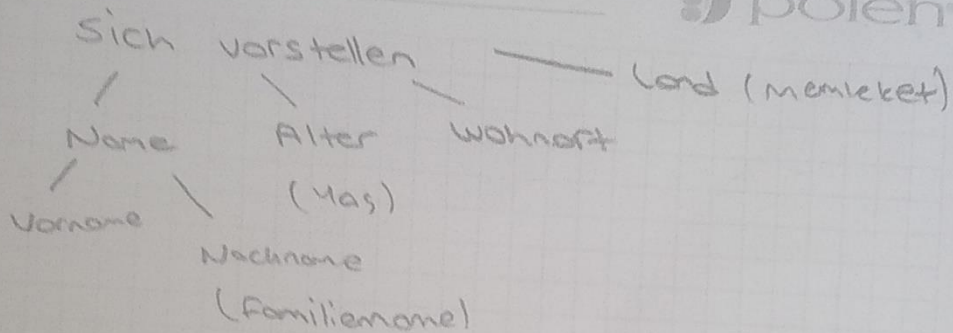 polen
sich vorstellen
Land (memleket)
Name Alter Wohnort
(Yaş)
Vorname
Nachname
(Familiename)